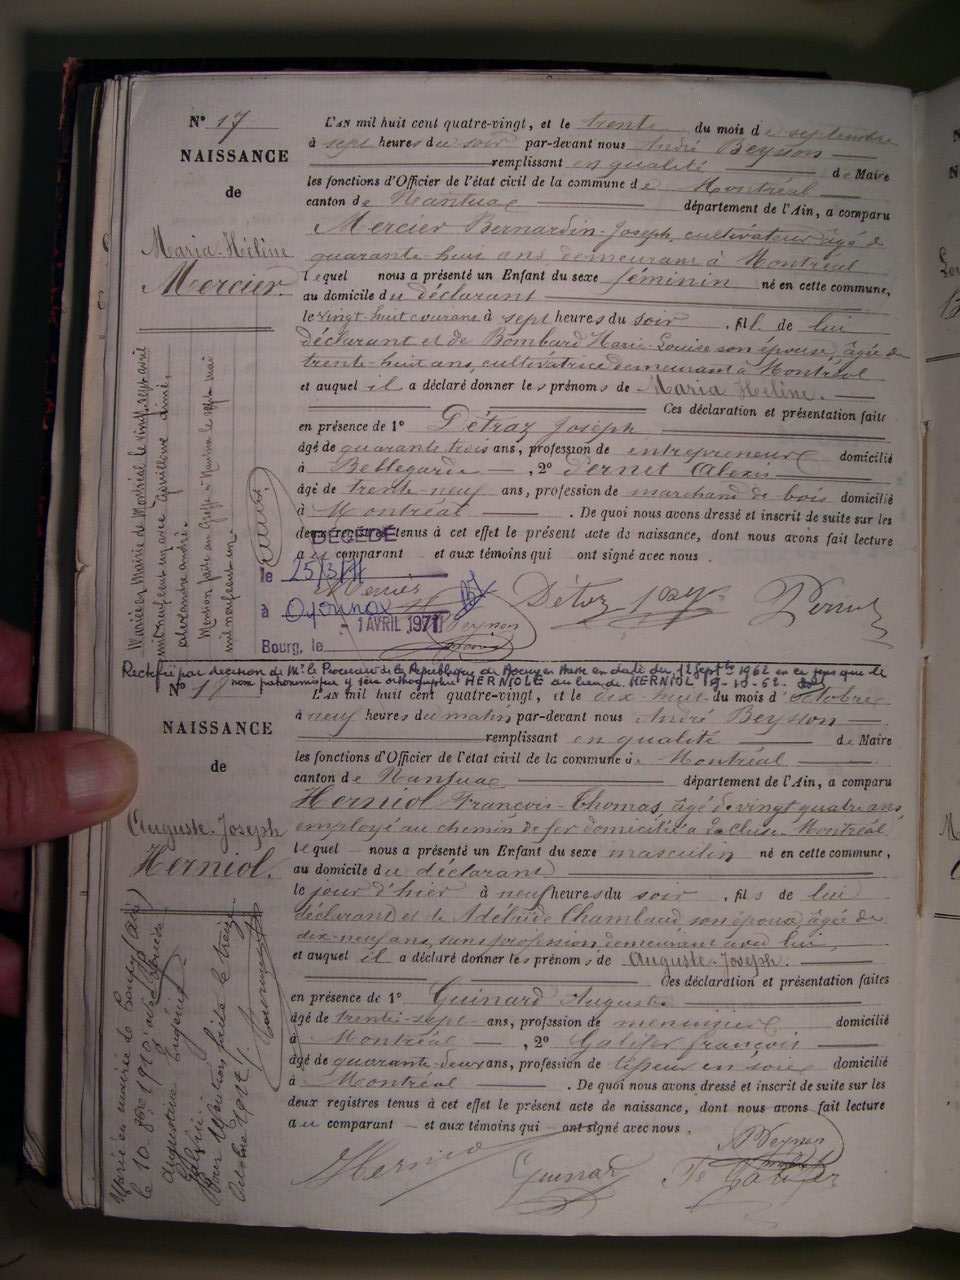 N° 17
NAISSANCE
de
Maria-Hélène
Mercier.
L'AN mil huit cent quatre-vingt, et le trente du mois de septembre
à sept heures du soir par-devant nous André Beysson
remplissant en qualité de Maire
les fonctions d'Officier de l'état civil de la commune de Montréal
canton de Nantua département de l'Ain, a comparu
Mercier Bernardin-Joseph, cultivateur âgé de
quarante-huit ans demeurant à Montréal
lequel nous a présenté un Enfant du sexe féminin né en cette commune,
au domicile du déclarant
le vingt-huit courant à sept heures du soir, fille de lui
déclarant et de Bombard Marie-Louise son épouse, âgée de
trente-huit ans, cultivatrice demeurant à Montréal
et auquel il a déclaré donner les prénoms de Maria Hélène.
Ces déclaration et présentation faites
en présence de 1° Détraz Joseph
âgé de quarante trois ans, profession de entrepreneur domicilié
à Bellegarde, 2° Pernet Alexis
âgé de trente-neuf ans, profession de marchand de bois domicilié
à Montréal. De quoi nous avons dressé et inscrit de suite sur les
deux registres tenus à cet effet le présent acte de naissance, dont nous avons fait lecture
au comparant et aux témoins qui ont signé avec nous.
Mariée en Mairie de Montréal le vingt-sept avril
mil neuf cent un avec
alexandre andré.
Mention faite au Greffe à Nantua le sept mai
mil neuf cent un.
DÉCÉDÉ
le 25/3/71
à Oyonnax
Bourg, le - 1 AVRIL 1971
Mercier
Beysson
Pernet
Rectifié par décision de Mr le Procureur de la République de Bourg en Bresse en date du 12 Septbre 1962 en ce sens que le
nom patronymique y sera orthographié HERNIOLE au lieu de HERNIOL 19-10-62.
N° 17
NAISSANCE
de
Auguste-Joseph
Herniol.
L'AN mil huit cent quatre-vingt, et le dix-huit du mois d'octobre
à neuf heures du matin par-devant nous André Beysson
remplissant en qualité de Maire
les fonctions d'Officier de l'état civil de la commune de Montréal
canton de Nantua département de l'Ain, a comparu
Herniol François-Thomas, âgé de vingt quatre ans,
employé au chemin de fer domicilié à La Cluse-Montréal
lequel nous a présenté un Enfant du sexe masculin né en cette commune,
au domicile du déclarant
le jour d'hier à neuf heures du soir, fils de lui
déclarant et de Adélaïde Chambaud son épouse, âgée de
dix-neuf ans, sans profession demeurant avec lui,
et auquel il a déclaré donner les prénoms de Auguste-Joseph.
Ces déclaration et présentation faites
en présence de 1° Guinard Auguste
âgé de trente-sept ans, profession de menuisier domicilié
à Montréal, 2° François
âgé de quarante-deux ans, profession de tisseur en soie domicilié
à Montréal. De quoi nous avons dressé et inscrit de suite sur les
deux registres tenus à cet effet le présent acte de naissance, dont nous avons fait lecture
au comparant et aux témoins qui ont signé avec nous.
Marié en mairie de
le 10 1910
Augustine Eugénie
Pour Mention faite le treize
Octobre
Herniol
Guinard
Beysson